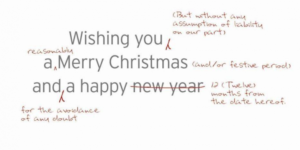 (But without any
assumption of liability
on our part)
Wishing you
reasonably
a Merry Christmas (and/or festive period)
and a happy new year 12 (Twelve)
months from
the date hereof
for the avoidance
of any doubt